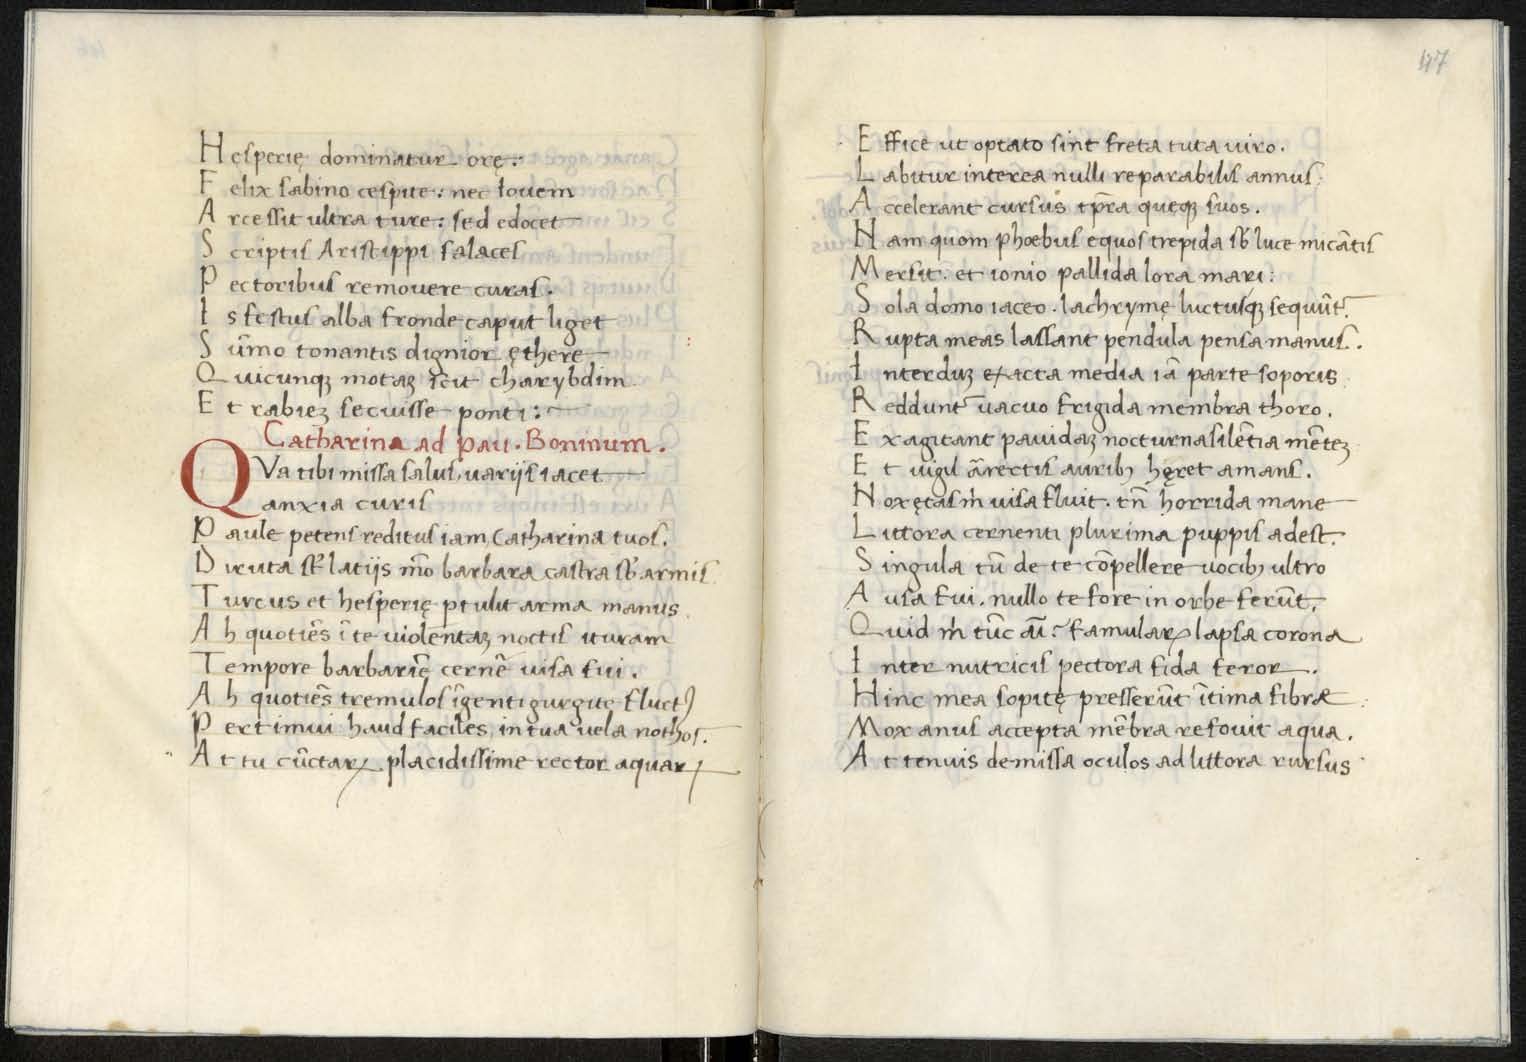 Hęsperię dominatur orę:
Felix sabino cespite: nec Iovem
Arcessit ultra ture: sed edocet
Scriptis Aristippi salaces
Pectoribus removere curas.
Is festus alba fronde caput liget
Sūmo tonantis dignior ęthere
Quicunqꝫ motaꝫ scit charybdim
Et rabieꝫ secuisse ponti:
Catharina ad Pau. Boninum.
QVa tibi missa salus, varijs iacet
anxia curis
Paule petens reditus iam Catharina tuos.
Diruta st latijs mō barbara castra sb armis
Turcus et hesperię ptulit arma manus
Ah quotiēs ī te violentaꝫ noctis ituram
Tempore barbariē cernē visa fui.
Ah quotiēs tremulos īgenti gurgite fluctꝰ
Pertimui haud faciles in tua vela nothos.
At tu cūctaꝝ placidissime rector aquaꝝ
47
Effice ut optato sint freta tuta viro.
Labitur interea nulli reparabilis annus.
Accelerant cursus tp̄ra queqꝫ suos.
Nam quom phœbus equos trepida sb luce micātis
Mersit. et ionio pallida lora mari:
Sola domo iaceo. lachrymę luctusqꝫ sequūt.
Rupta meas lassant pendula pensa manus.
Interduꝫ exacta media iā parte soporis
Reddunt vacuo frigida membra thoro.
Exagitant pavidaꝫ nocturna silētia mēteꝫ
Et vigil ārectis auribꝫ hęret amans.
Nox ętas m̄ visa fluit. tn̄ horrida mane
Littora cernenti plurima puppis adest.
Singula tū de te cōpellere vocibꝫ ultro
Ausa fui. nullo te fore in orbe ferūt.
Quid m̄ tūc aī? famulaꝝ lapsa corona
Inter nutricis pectora fida feror.
Hinc mea sopitę presserūt ītima fibræ
Mox anus accepta mēbra refovit aqua.
At tenuis demissa oculos ad littora rursus